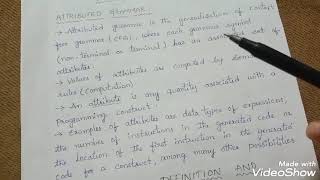 ATTRIBUTED GRAMMAR
→ Attributed grammar is the generalization of context
free grammar (CFG), where each grammar symbol
(non-terminal or terminal) has an associated set of
attributes.
→ Values of attributes are computed by semantic
rules (computation)
→ An attribute is any quantity associated with a
programming construct.
→ Examples of attributes are data types of expressions,
the number of instructions in the generated code or
the location of the first instruction in the generated
code for a construct, among many other possibilities
DEFINITION AND
Made with
VideoShow